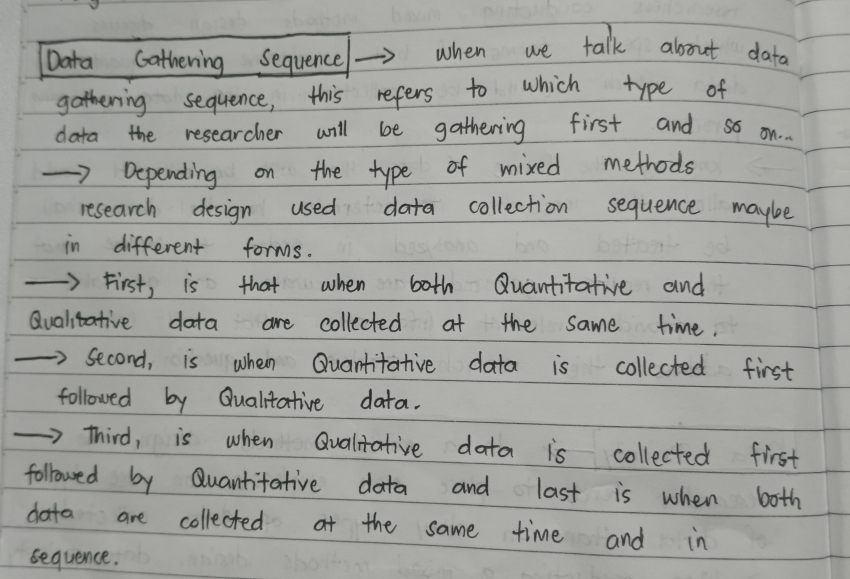 Data Gathering Sequence → when we talk about data
gathering sequence, this refers to which type of
data the researcher will be gathering first and so on...
→ Depending on the type of mixed methods
research design used data collection sequence maybe
in different forms.
→ First, is that when both Quantitative and
Qualitative data are collected at the same time.
→ Second, is when Quantitative data is collected first
followed by Qualitative data.
→ Third, is when Qualitative data is collected first
followed by Quantitative data and last is when both
data are collected at the same time and in
sequence.